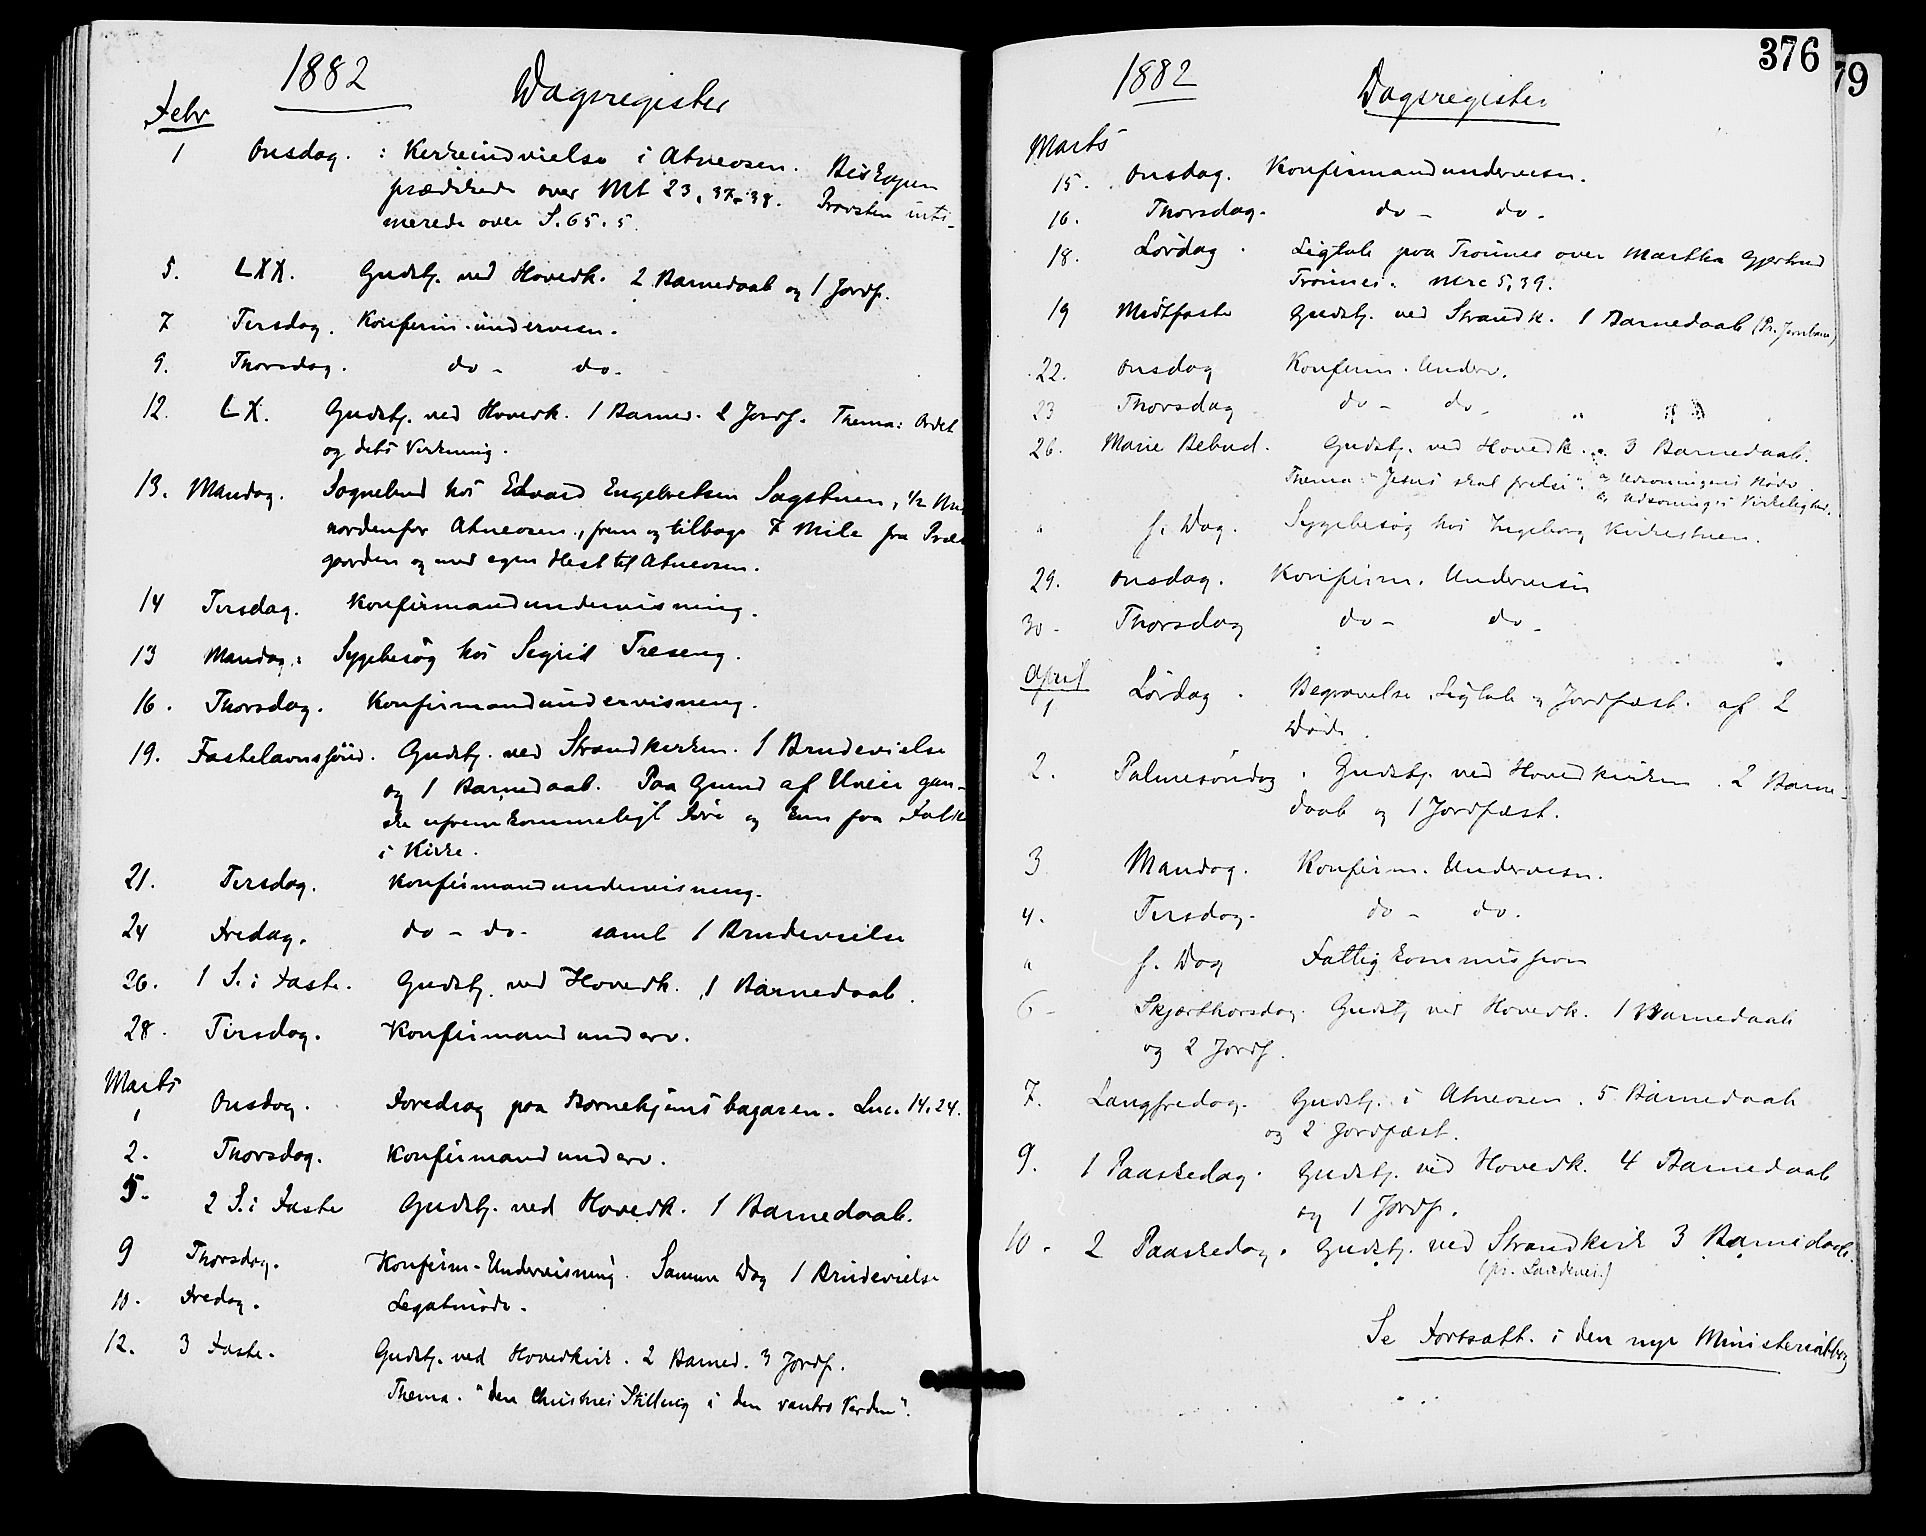 1882 Dagsregister
Febr
1 Onsdag. : Kirkeindvielse i Atneosen. Biskopen
prædikede over Mt 23, 37-38. Provsten inti-
merede over S. 65. 5.
5. LXX. Gudstj. ved Hovedk. 2 Barnedaab og 1 Jordf.
7 Tirsdag. Konfirm. undervisn.
9. Thorsdag. do - do -
12. LX. Gudstj. ved Hovedk. 1 Barned. 2 Jordf. Thema: Ordet
og dets Virkning.
13. Mandag. Sognebud hos Edvard Engebretsen Sagstuen, 1/2 Mil
nordenfor Atneosen, frem og tilbage 7 Mile fra Præste
gaarden og med egen Hest til Atneosen.
14 Tirsdag. Konfirmandundervisning.
13 Mandag: Sygebesøg hos Sigrid Træseng.
16. Thorsdag. Konfirmandundervisning.
19. Fastelavnssönd. Gudstj. ved Strandkirken. 1 Brudevielse
og 1 Barnedaab. Paa Grund af Uveir gan-
ske ufremkommeligt Føre og kun faa Folk
i Kirke.
21. Tirsdag. Konfirmandundervisning.
24 Fredag. do - do - samt 1 Brudevielse
26. 1 S. i Faste. Gudstj. ved Hovedk. 1 Barnedaab.
28. Tirsdag. Konfirmandunderv.
Marts
1 Onsdag. Foredrag paa Børnehjemsbazaren. Luc. 14,24.
2. Thorsdag. Konfirmandunderv.
5. 2 S. i Faste Gudstj. ved Hovedk. 1 Barnedaab.
9 Thorsdag. Konfirm.-Undervisning. Samme Dag 1 Brudevielse
10. Fredag. Legatmøde.
12. 3 Faste. Gudstj. ved Hovedkirk. 2 Barned. 3 Jordf.
Thema. "Den Christnes Stilling i den vantro Verden".
376
79
1882 Dagsregister
Marts
15. Onsdag. Konfirmandundervisn.
16. Thorsdag. do - do -
18. Lördag. Ligtale paa Trønnes over Martha Gjertrud
Trønnes. Mrc 5,39.
19 Midtfaste Gudstj. ved Strandk. 1 Barnedaab (Pr. Jernbane)
22. Onsdag Konfirm. Underv.
23 Thorsdag do - do -
26. Marie Bebud. Gudstj. ved Hovedk. 3 Barnedaab.
Thema: "Jesus skal frelse" a, Udsoningens Nødv.
b, Udsoningens Virkelighed.
" s. Dag. Sygebesøg hos Ingeborg Kvilestuen.
29. Onsdag. Konfirm. Undervisn
30 - Thorsdag do - do -
April
1 Lördag. Begravelse Ligtale og Jordfæst. af 2
Døde.
2. Palmesöndag. Gudstj. ved Hovedkirken. 2 Barne-
daab og 1 Jordfæst.
3 Mandag. Konfirm. Undervisn.
4. Tirsdag. do - do.
" s. Dag Fattigkommission
6 - Skjærthorsdag. Gudstj. ved Hovedk. 1 Barnedaab
og 2 Jordf.
7. Langfredag. Gudstj. i Atneosen. 5 Barnedaab
og 2 Jordfæst.
9. 1 Paaskedag. Gudstj. ved Hovedk. 4 Barnedaab
og 1 Jordf.
10. 2 Paaskedag. Gudstj. ved Strandkirk 3 Barnedaab.
(pr. Landevei.)
Se Fortsætt. i den nye Ministerialbog